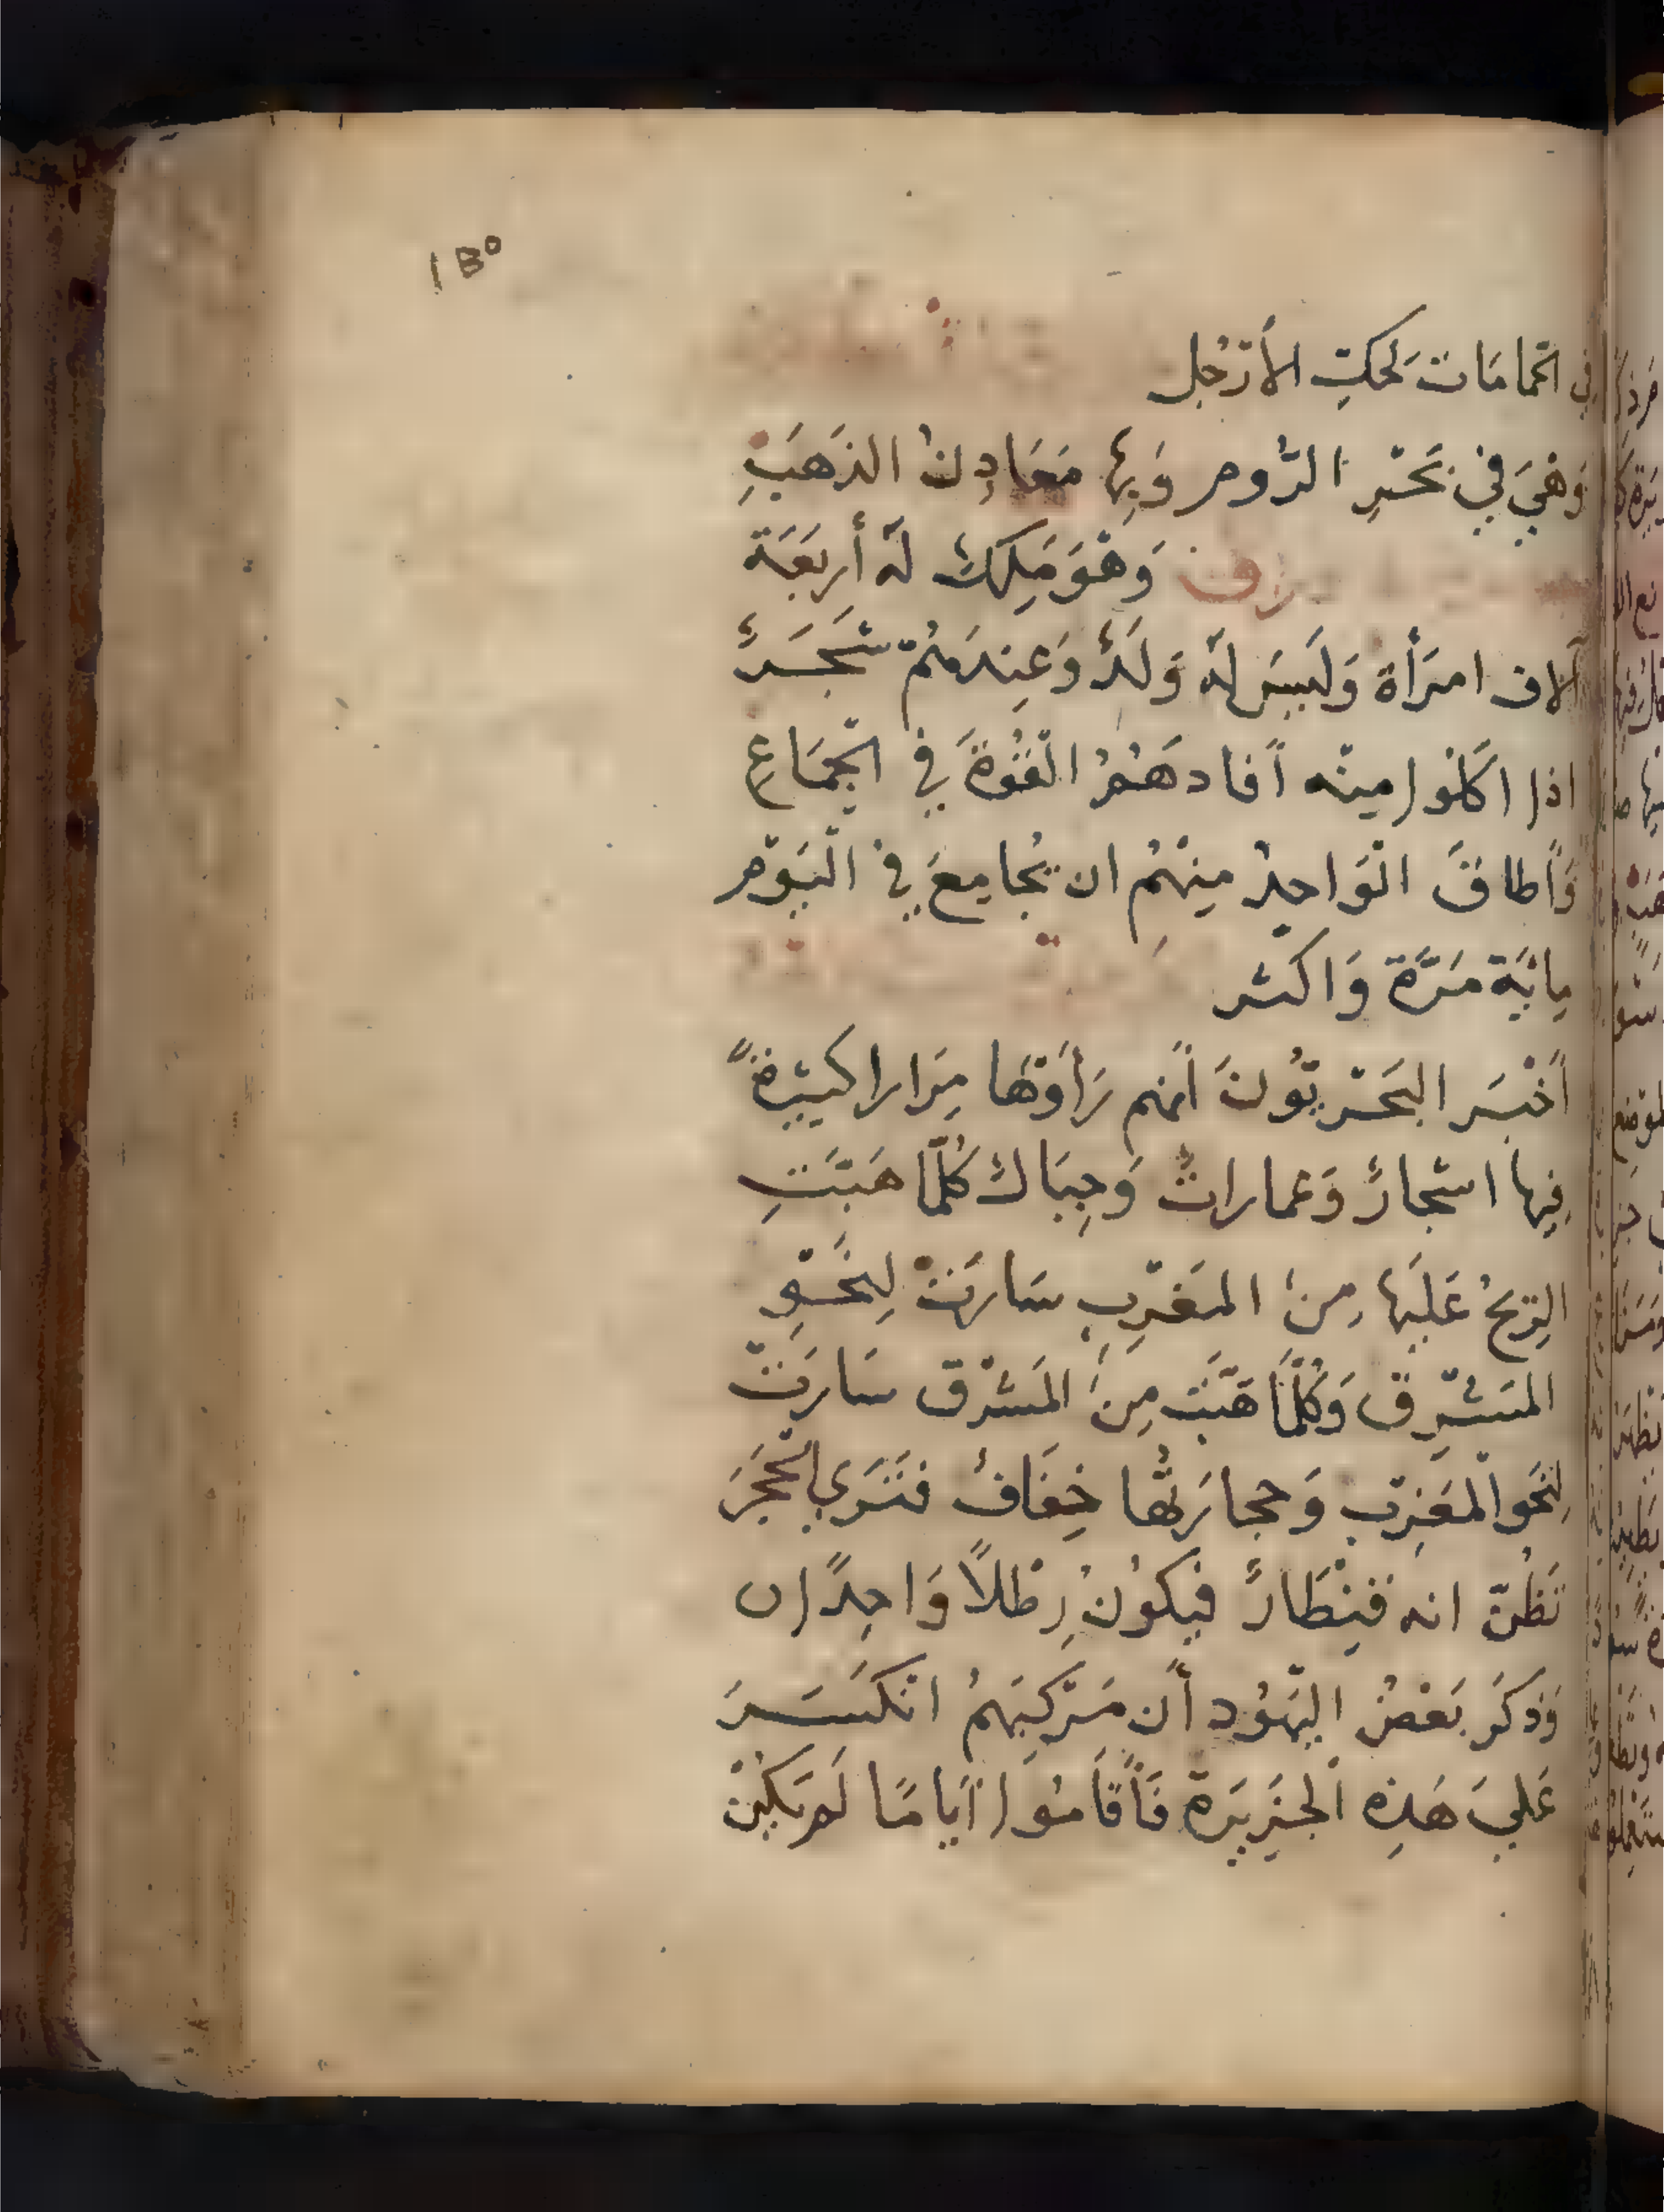 ١٣٥
في الحمامات لحكِّ الأرْجُل
وَهْيَ في بَحْرِ الرُّومِ وَبِهَا مَعَادِنُ الذَهَبِ
وَهْوَ مَلِكٌ لَهُ أَربَعَة
آلاف امرَأة وَلَيسَ لَهُ وَلَدٌ وَعِندَهُمْ شَجَرٌ
اذا اكَلُوا مِنْه أَفادهَمُ الْقُوةَ في الْجِمَاعِ
وَأَطاقَ الْوَاحِدُ مِنْهُم ان يُجَامِعَ في الْيَوْمِ
مِايَةَ مَرَّة وَاكثر
أَخْبَرَ البَحْريُّونَ أَنهم رَأَوْهَا مِرَارا كثِيرَةً
فِيها اشجَارٌ وَعمارات وَجِبَال كُلَّما هَبَّتِ
الرِيحُ عَلَيهَا مِنَ المَغْرِبِ سَارَتْ لِنَحْوِ
المَشْرِق وَكُلَّمَا هَبَّت مِنَ المَشْرق سَارَتْ
لِنَحو الْمَغرِب وَحِجارَتُها خِفَافٌ فتَرَي الْحَجَرَ
تَظُنّ انه قِنْطَارٌ فيكُونُ رِطْلاً وَاحِدًا
وَذكَرَ بَعْضُ اليَهُود أَن مَرْكِبَهُمُ انْكَسَرَ
عَليَ هَذِه الجَزِيرَة فَأَقَامُوا أَيامًا لَم يَكُنْ